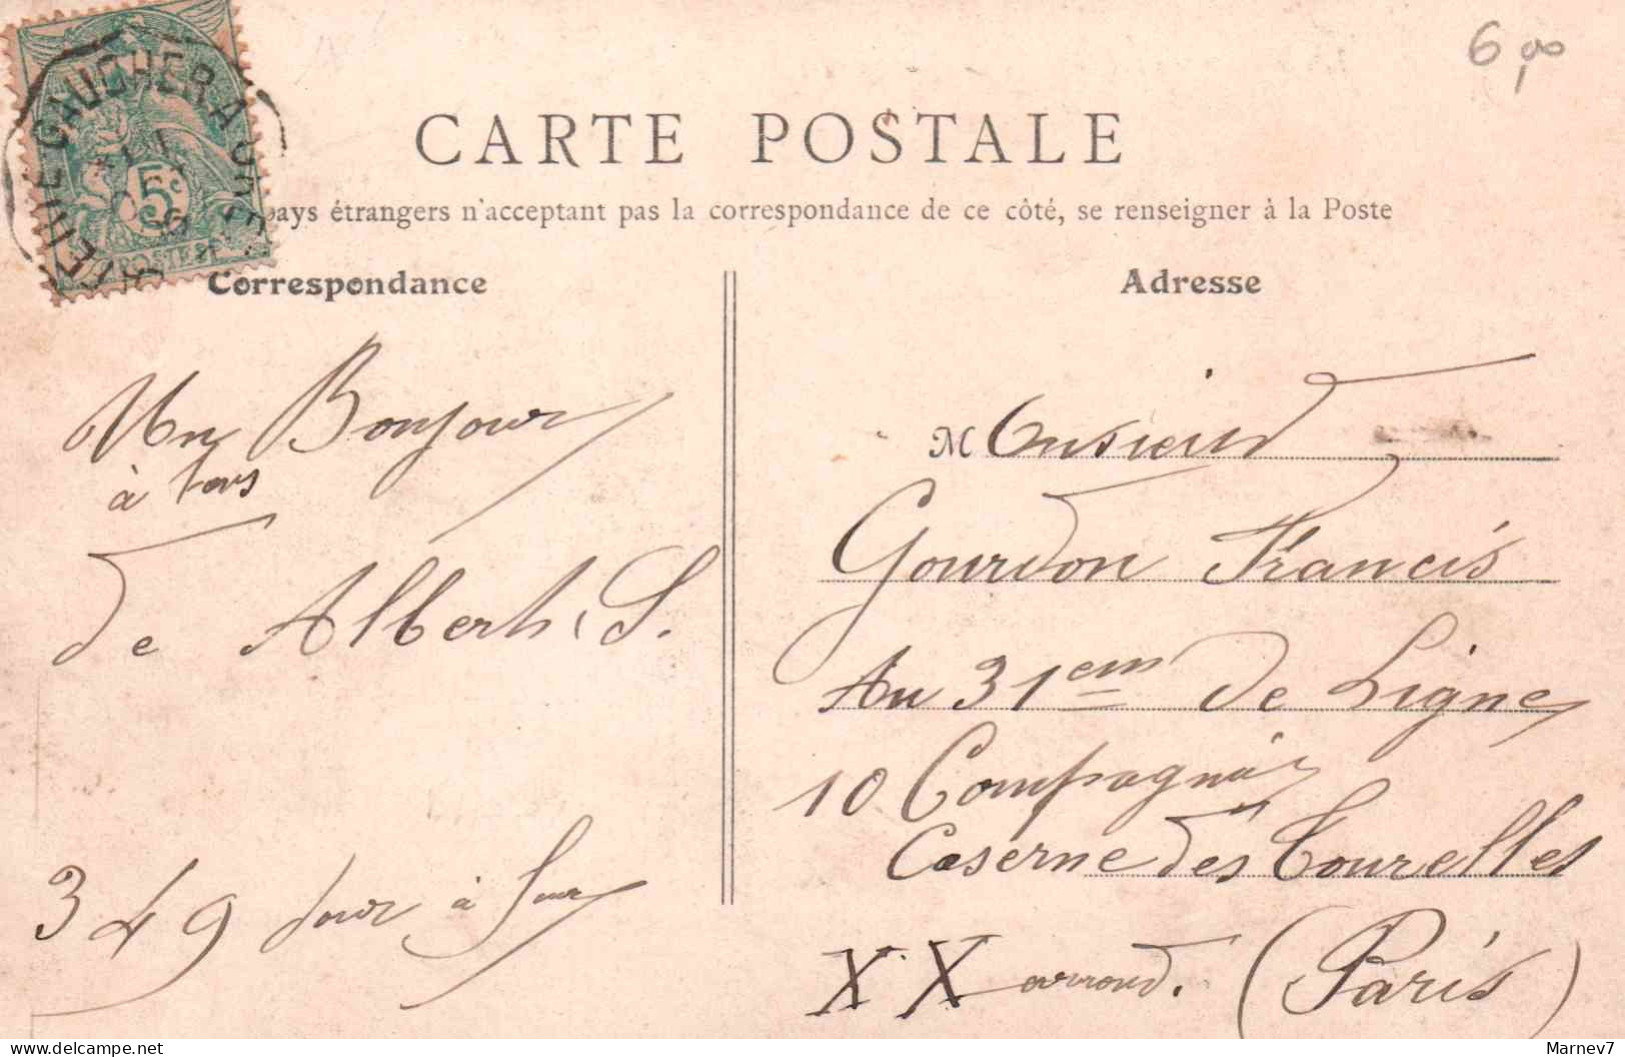 6,00
CARTE POSTALE
pays étrangers n'acceptant pas la correspondance de ce côté, se renseigner à la Poste
5c
POSTES
Correspondance
Un Bonjour
à tous
de Albert. S.
349 jour à faire
Adresse
Monsieur
Gourdon Francis
Au 31em de Ligne
10 Compagnie
Caserne des Tourelles
XX arrond. (Paris)
Marnev7